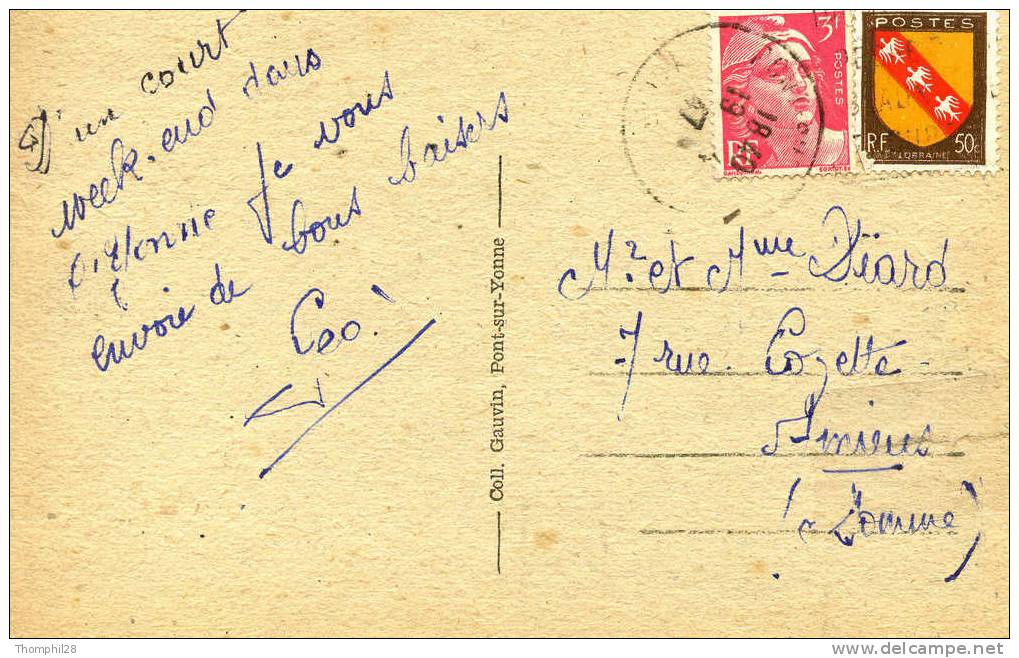 D'un court
week-end dans
l'Yonne je vous
envoie de bons baisers
Géo
Coll. Gauvin, Pont-sur-Yonne
3f
POSTES
RF
18 40
13
47
POSTES
R.F.
50c
LORRAINE
Mr et Mme Diard
7 rue Cozette
Amiens
(Somme)
Thomphi28
www.delcampe.net